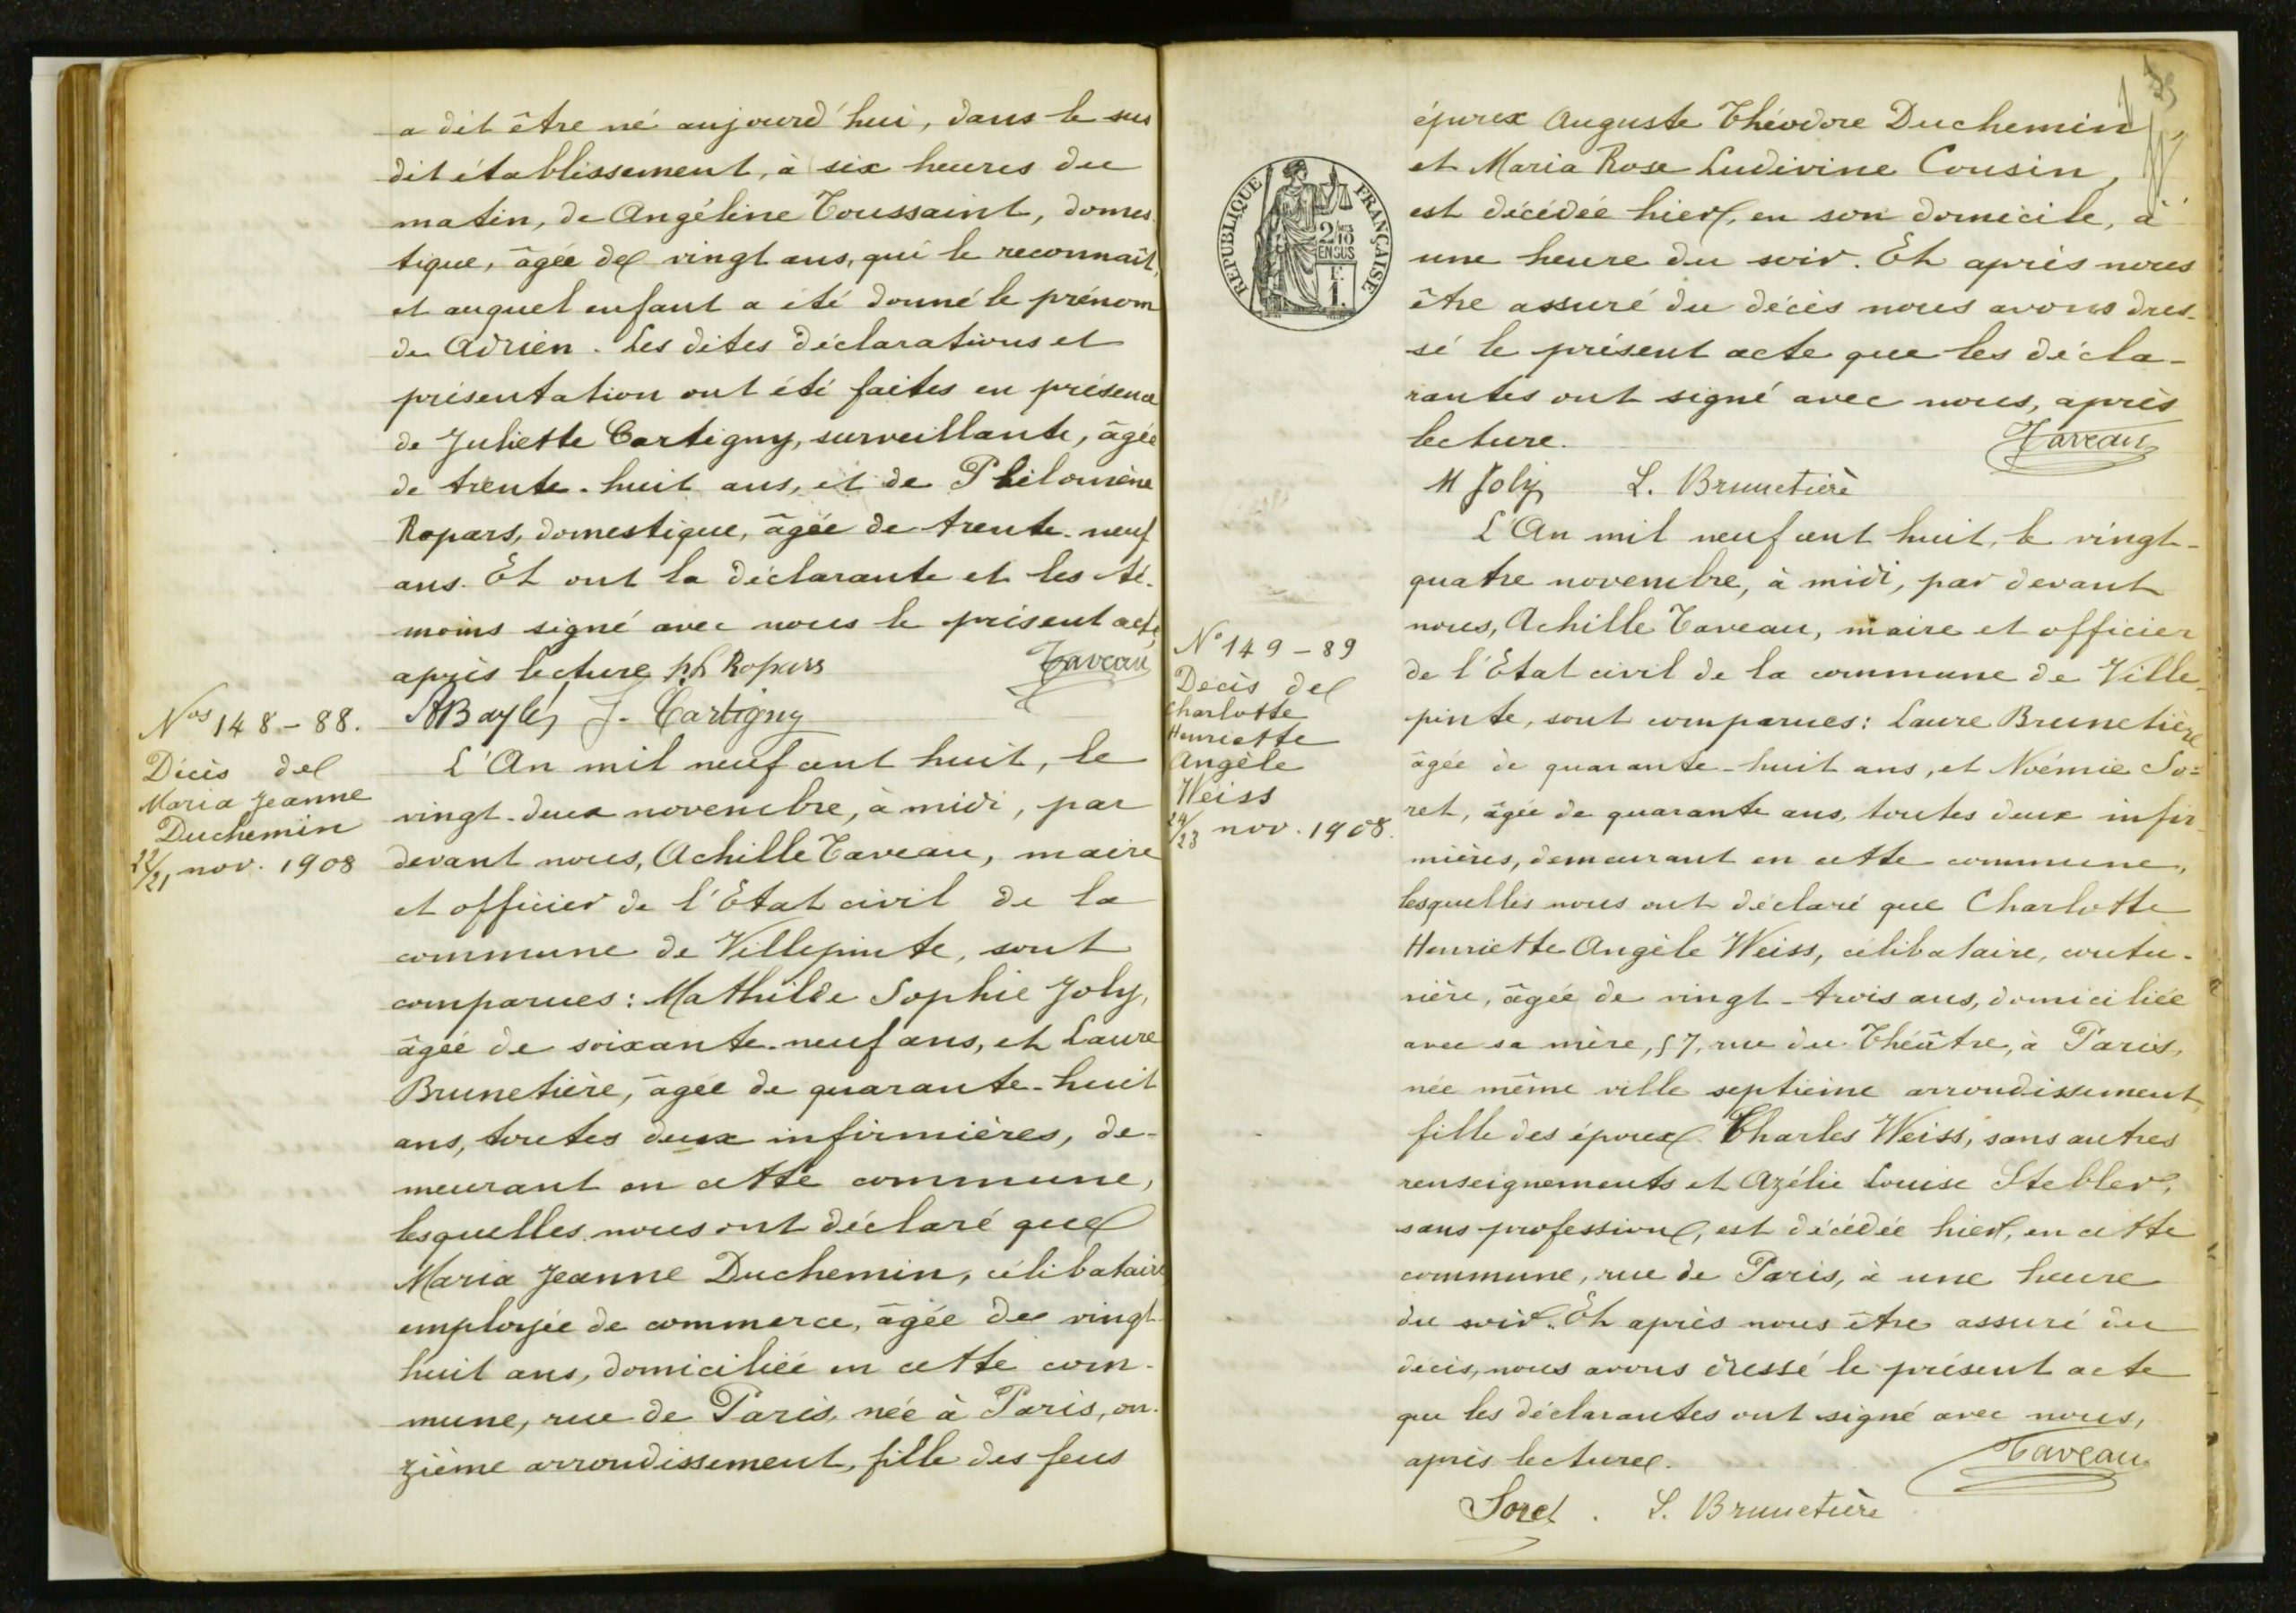 a dit être né aujourd'hui, dans le sus
dit établissement, à six heures du
matin, de Angéline Toussaint, domes
tique, âgée de vingt ans, qui le reconnaît,
et auquel enfant a été donné le prénom
de Adrien. Les dites déclarations et
présentation ont été faites en présence
de Juliette Cartigny, surveillante, âgée
de trente-huit ans, et de Philomène
Ropars, domestique, âgée de trente-neuf
ans. Et ont la déclarante et les té-
moins signé avec nous le présent acte,
après lecture. ph Ropars Taveau
ABayle J. Cartigny
Nos 148-88.
Décès de
Maria Jeanne
Duchemin
22/21 nov. 1908
L'An mil neuf cent huit, le
vingt-deux novembre, à midi, par
devant nous, Achille Taveau, maire
et officier de l'Etat civil de la
commune de Villepinte, sont
comparues: Mathilde Sophie Joly,
âgée de soixante-neuf ans, et Laure
Brunetière, âgée de quarante-huit
ans, toutes deux infirmières, de-
meurant en cette commune,
lesquelles nous ont déclaré que
Maria Jeanne Duchemin, célibataire
employée de commerce, âgée de vingt
huit ans, domiciliée en cette com-
mune, rue de Paris, née à Paris, on-
zième arrondissement, fille des feus
époux Auguste Théodore Duchemin,
et Maria Rose Ludivine Cousin,
est décédée hier, en son domicile, à
une heure du soir. Et après nous
être assuré du décès nous avons dres-
sé le présent acte que les décla-
rantes ont signé avec nous, après
lecture. Taveau
M Joly L. Brunetière
REPUBLIQUE FRANÇAISE
2/10
EN SUS
1 F.
N° 149-89
Décès de
Charlotte
Henriette
Angèle
Weiss
24/23 nov. 1908.
L'An mil neuf cent huit, le vingt-
quatre novembre, à midi, par devant
nous, Achille Taveau, maire et officier
de l'Etat civil de la commune de Ville-
pinte, sont comparues: Laure Brunetière
âgée de quarante-huit ans, et Noémie So=
ret, âgée de quarante ans, toutes deux infir-
mières, demeurant en cette commune,
lesquelles nous ont déclaré que Charlotte
Henriette Angèle Weiss, célibataire, coutu-
rière, âgée de vingt-trois ans, domiciliée
avec sa mère, 57, rue du Théâtre, à Paris,
née même ville septième arrondissement,
fille des époux Charles Weiss, sans autres
renseignements et Azélie Louise Stebler,
sans profession, est décédée hier, en cette
commune, rue de Paris, à une heure
du soir. Et après nous être assuré du
décès, nous avons dressé le présent acte
que les déclarantes ont signé avec nous,
après lecture. Taveau
Soret. L. Brunetière